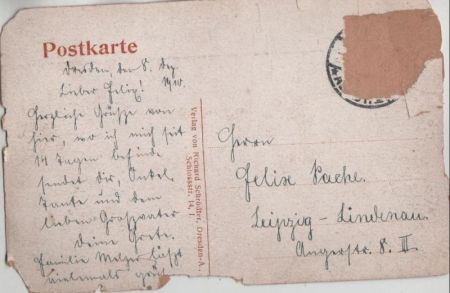 Postkarte
Dresden, den 8. Dez.
Lieber Felix! 1910.
Herzliche Grüße von
hier, wo ich mich seit
14 Tagen befinde
sendet Dir, Onkel
Tante und dem
lieben Großvater
Deine Grete.
Familie Melzer läßt
vielemals
Verlag von Richard Schröttler, Dresden-A.,
Schlossstr. 14, I.
Herrn
Felix Pache.
Leipzig-Lindenau.
Angerstr. 8. III